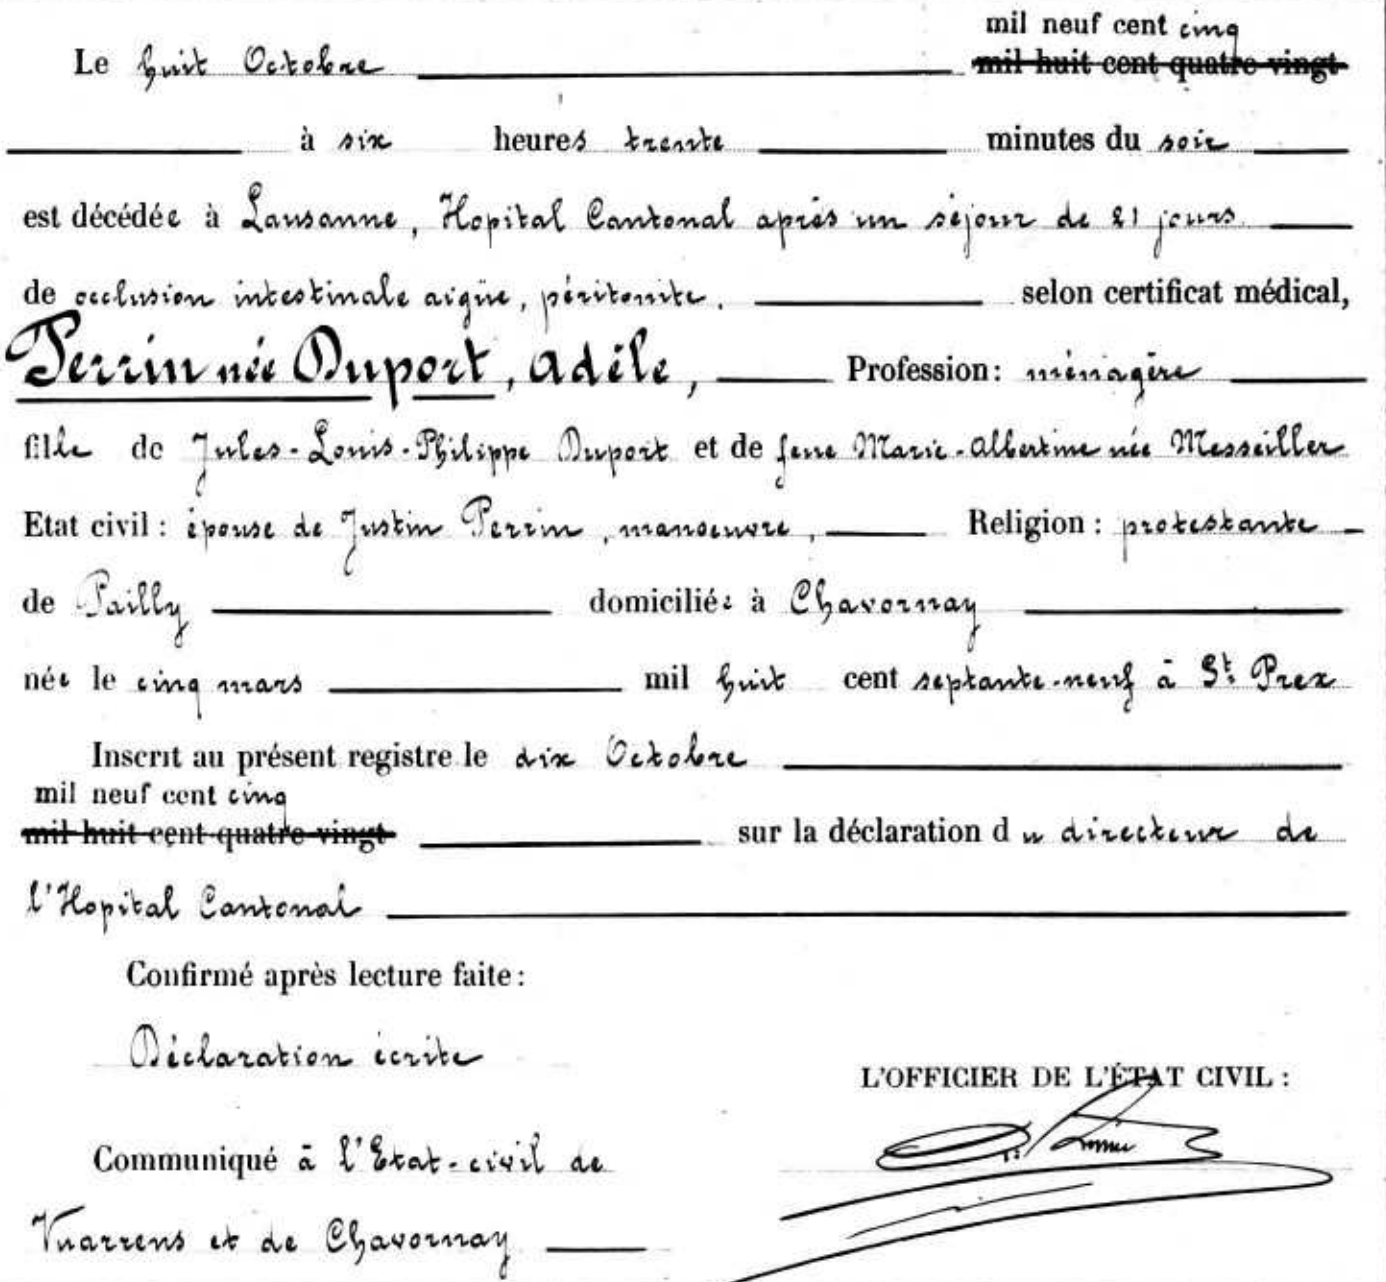 mil neuf cent cinq
Le huit Octobre mil huit cent quatre-vingt
à six heures trente minutes du soir
est décédée à Lausanne, Hopital Cantonal après un séjour de 21 jours.
de occlusion intestinale aigüe, péritonite. selon certificat médical,
Perrin née Duport, Adèle, Profession: ménagère
fille de Jules-Louis-Philippe Duport et de feue Marie-Albertine née Messeiller
Etat civil : épouse de Justin Perrin, manoeuvre, Religion : protestante
de Pailly domiciliée à Chavornay
née le cinq mars mil huit cent septante-neuf à St. Prex
Inscrit au présent registre le dix Octobre
mil neuf cent cinq
mil huit cent quatre-vingt sur la déclaration du directeur de
l'Hopital Cantonal
Confirmé après lecture faite :
Déclaration écrite
L'OFFICIER DE L'ÉTAT CIVIL :
Communiqué à l'Etat-civil de
Vuarrens et de Chavornay